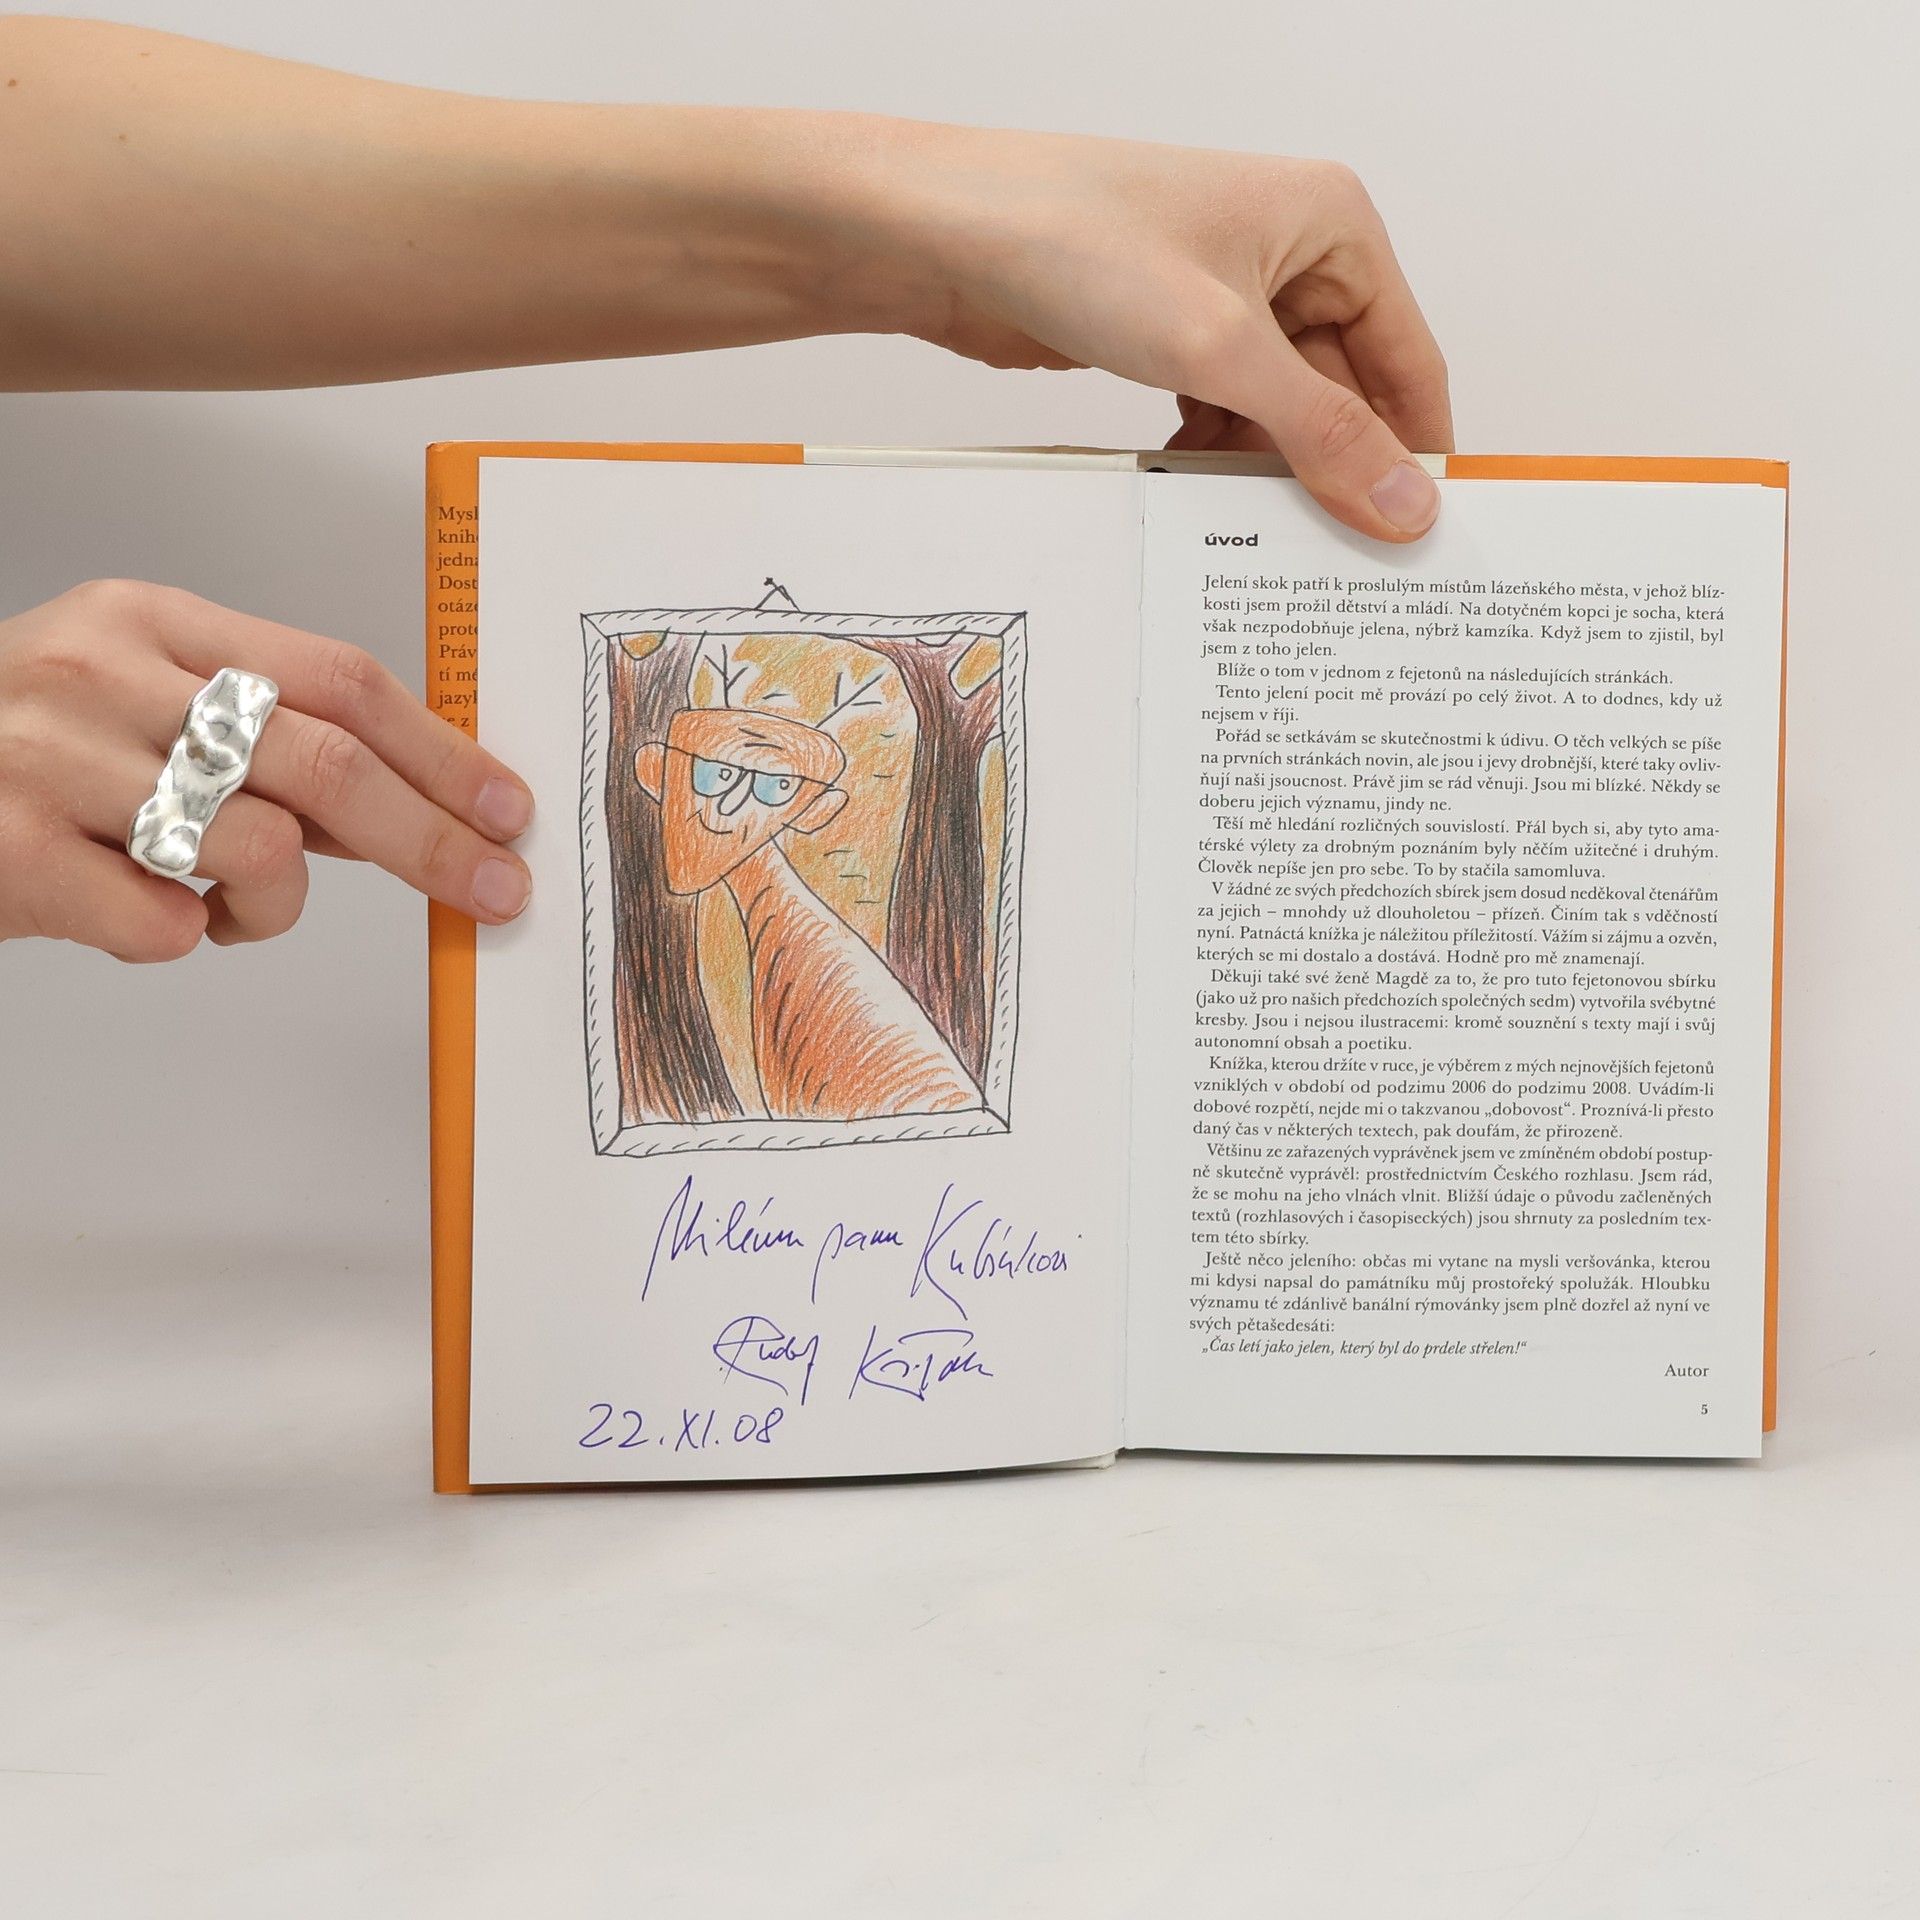 Mysl
knih
jedna
Dost
otáz
prot
Práv
tí mé
jazyk
se z
Milému panu Kubínkovi
Rudolf Křesťan
22.XI.08
úvod
Jelení skok patří k proslulým místům lázeňského města, v jehož blíz-
kosti jsem prožil dětství a mládí. Na dotyčném kopci je socha, která
však nezpodobňuje jelena, nýbrž kamzíka. Když jsem to zjistil, byl
jsem z toho jelen.
Blíže o tom v jednom z fejetonů na následujících stránkách.
Tento jelení pocit mě provází po celý život. A to dodnes, kdy už
nejsem v říji.
Pořád se setkávám se skutečnostmi k údivu. O těch velkých se píše
na prvních stránkách novin, ale jsou i jevy drobnější, které taky ovliv-
ňují naši jsoucnost. Právě jim se rád věnuji. Jsou mi blízké. Někdy se
doberu jejich významu, jindy ne.
Těší mě hledání rozličných souvislostí. Přál bych si, aby tyto ama-
térské výlety za drobným poznáním byly něčím užitečné i druhým.
Člověk nepíše jen pro sebe. To by stačila samomluva.
V žádné ze svých předchozích sbírek jsem dosud neděkoval čtenářům
za jejich – mnohdy už dlouholetou – přízeň. Činím tak s vděčností
nyní. Patnáctá knížka je náležitou příležitostí. Vážím si zájmu a ozvěn,
kterých se mi dostalo a dostává. Hodně pro mě znamenají.
Děkuji také své ženě Magdě za to, že pro tuto fejetonovou sbírku
(jako už pro našich předchozích společných sedm) vytvořila svébytné
kresby. Jsou i nejsou ilustracemi: kromě souznění s texty mají i svůj
autonomní obsah a poetiku.
Knížka, kterou držíte v ruce, je výběrem z mých nejnovějších fejetonů
vzniklých v období od podzimu 2006 do podzimu 2008. Uvádím-li
dobové rozpětí, nejde mi o takzvanou „dobovost“. Proznívá-li přesto
daný čas v některých textech, pak doufám, že přirozeně.
Většinu ze zařazených vyprávěnek jsem ve zmíněném období postup-
ně skutečně vyprávěl: prostřednictvím Českého rozhlasu. Jsem rád,
že se mohu na jeho vlnách vlnit. Bližší údaje o původu začleněných
textů (rozhlasových i časopiseckých) jsou shrnuty za posledním tex-
tem této sbírky.
Ještě něco jeleního: občas mi vytane na mysli veršovánka, kterou
mi kdysi napsal do památníku můj prostořeký spolužák. Hloubku
významu té zdánlivě banální rýmovánky jsem plně dozřel až nyní ve
svých pětašedesáti:
„Čas letí jako jelen, který byl do prdele střelen!“
Autor
5